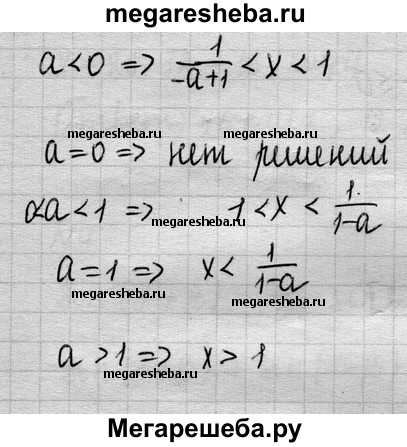 megaresheba.ru
a<0 => 1/(-a+1) < x < 1
megaresheba.ru
megaresheba.ru
a=0 => нет решений
∝a<1 => 1<x< 1/(1-a)
megaresheba.ru
a=1 => x< 1/(1-a)
megaresheba.ru
megaresheba.ru
a>1 => x>1
megaresheba.ru
Мегарешеба.ру